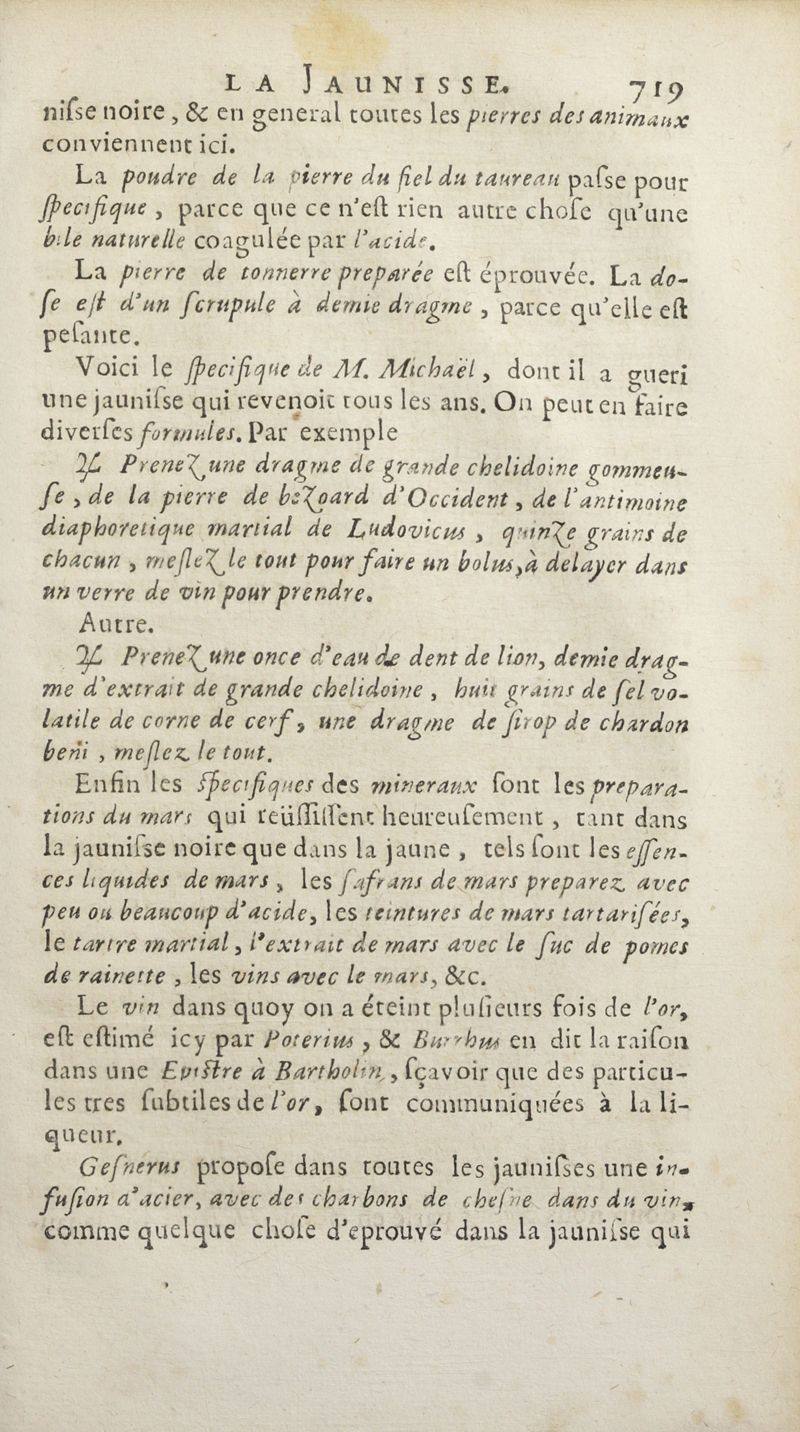 LA JAUNISSE. 719
niſse noire, & en general toutes les pierres des animaux
conviennent ici.
La poudre de la pierre du fiel du taureau paſse pour
ſpecifique, parce que ce n'eſt rien autre choſe qu'une
bile naturelle coagulée par l'acide.
La pierre de tonnerre preparée eſt éprouvée. La do-
ſe eſt d'un ſcrupule à demie dragme, parce qu'elle eſt
peſante.
Voici le ſpecifique de M. Michaël, dont il a gueri
une jauniſse qui revenoit tous les ans. On peut en faire
diverſes formules. Par exemple
♃ Prenez une dragme de grande chelidoine gommeu-
ſe, de la pierre de bezoard d'Occident, de l'antimoine
diaphoretique martial de Ludovicus, quinze grains de
chacun, meſlez le tout pour faire un bolus, à delayer dans
un verre de vin pour prendre.
Autre.
♃ Prenez une once d'eau de dent de lion, demie drag-
me d'extrait de grande chelidoine, huit grains de ſel vo-
latile de corne de cerf, une dragme de ſirop de chardon
beni, meſlez le tout.
Enfin les ſpecifiques des mineraux ſont les prepara-
tions du mars qui reüſſiſſent heureuſement, tant dans
la jauniſse noire que dans la jaune, tels ſont les eſſen-
ces liquides de mars, les ſafrans de mars preparez avec
peu ou beaucoup d'acide, les teintures de mars tartariſées,
le tartre martial, l'extrait de mars avec le ſuc de pomes
de rainette, les vins avec le mars, &c.
Le vin dans quoy on a éteint pluſieurs fois de l'or,
eſt eſtimé icy par Poterius, & Burrhus en dit la raiſon
dans une Epiſtre à Bartholin, ſçavoir que des particu-
les tres ſubtiles de l'or, ſont communiquées à la li-
queur.
Geſnerus propoſe dans toutes les jauniſses une in-
fuſion d'acier, avec des charbons de cheſne dans du vin,
comme quelque choſe d'eprouvé dans la jauniſse qui